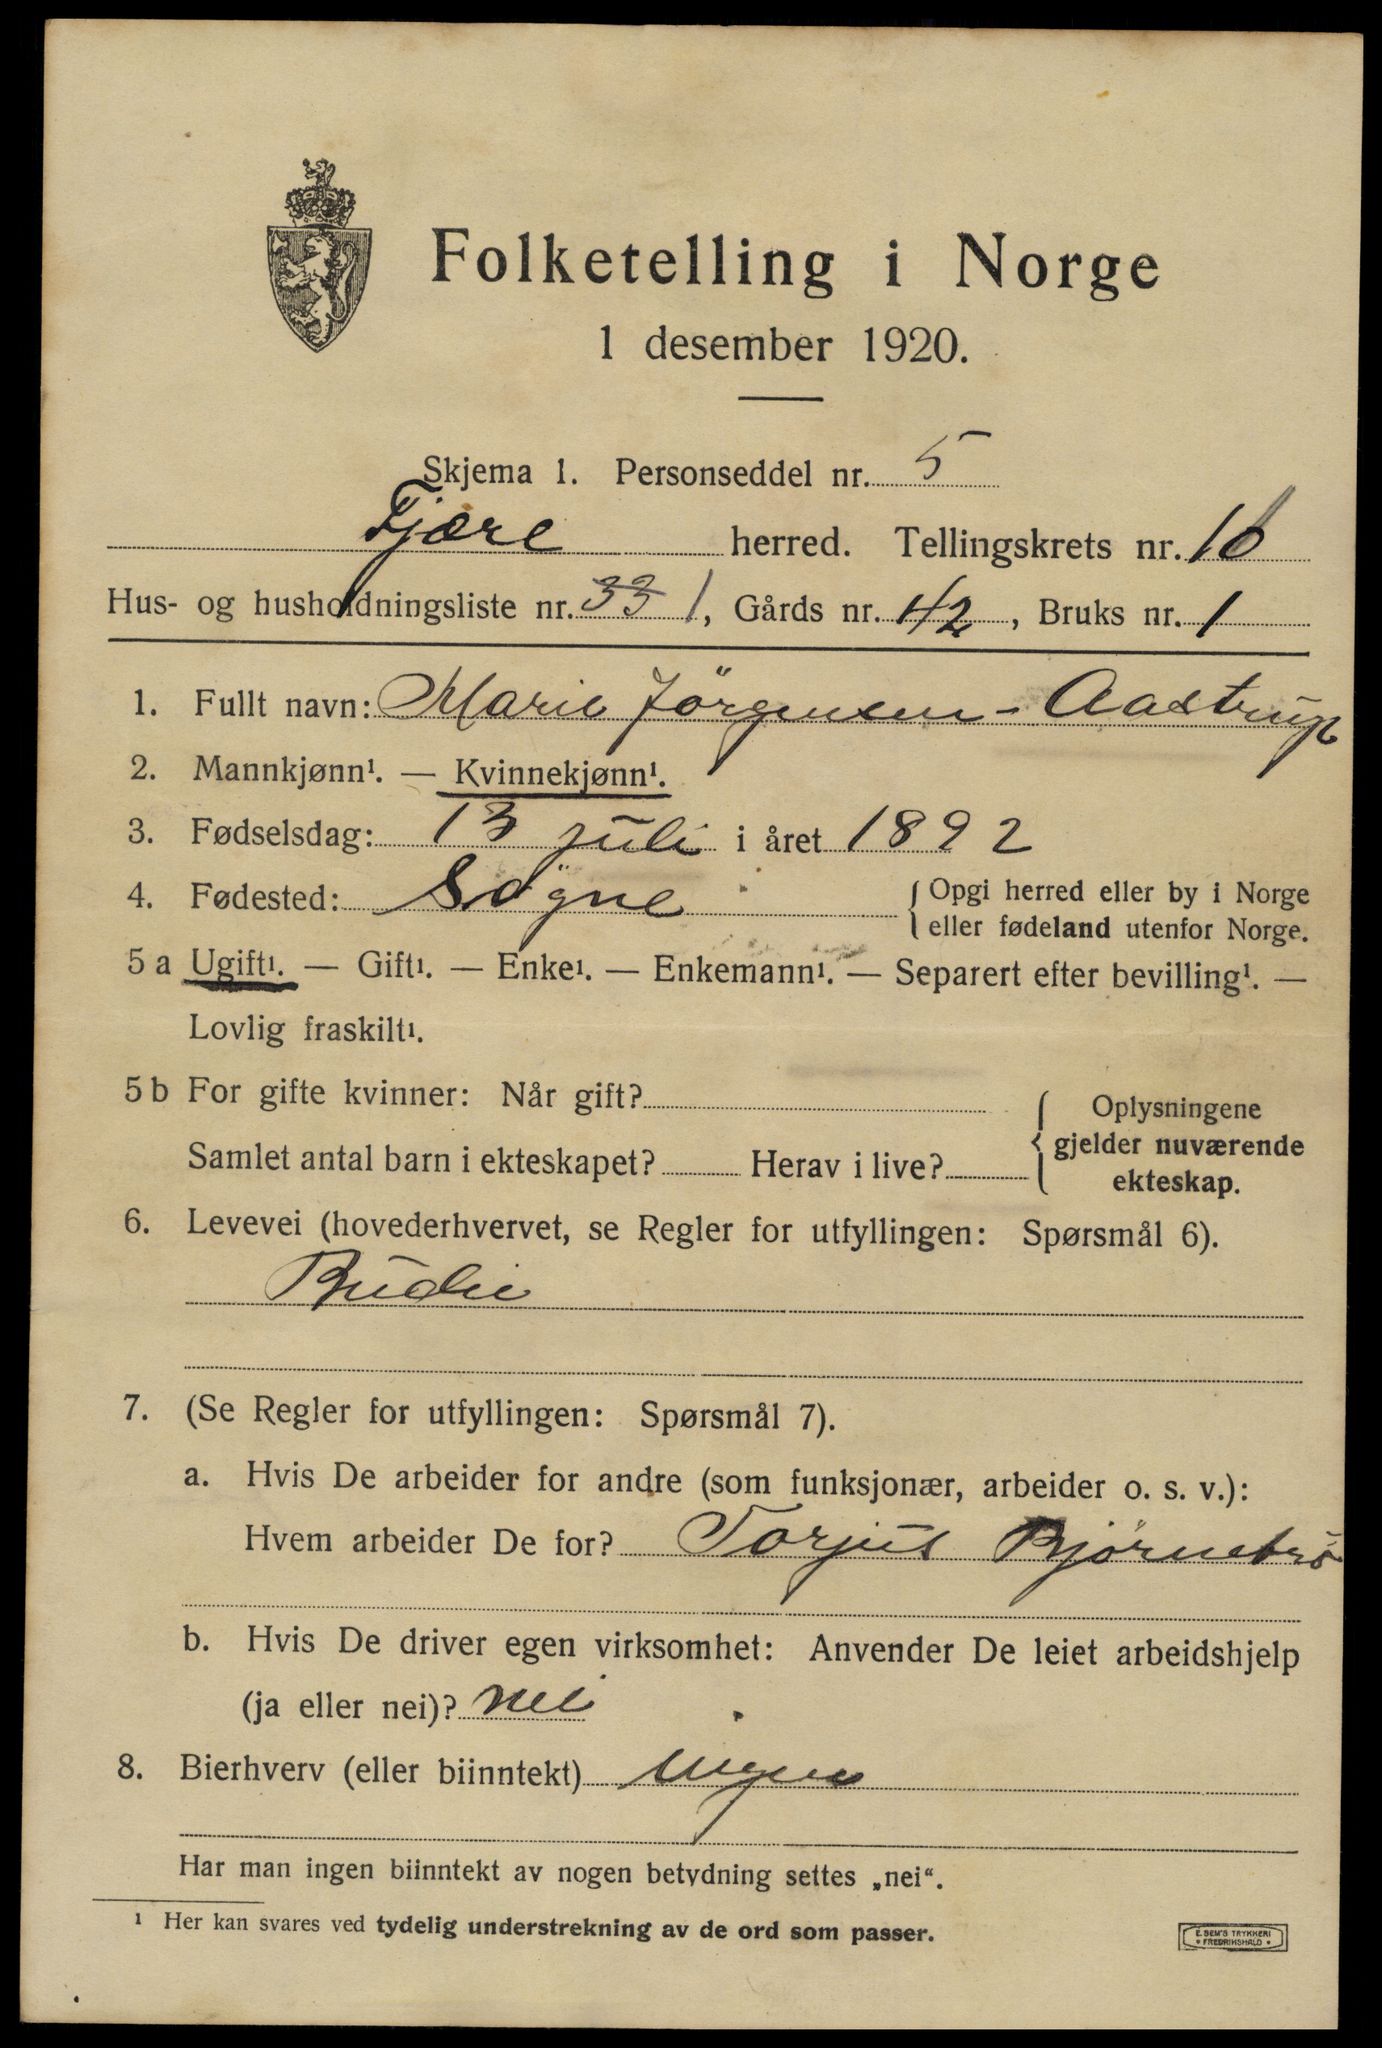 Folketelling i Norge
1 desember 1920.
Skjema 1. Personseddel nr. 5
Fjære herred. Tellingskrets nr. 16
Hus- og husholdningsliste nr. 33 1, Gårds nr. 42, Bruks nr. 1
1. Fullt navn: Marie Jörgensen - Aastrup
2. Mannkjønn¹. — Kvinnekjønn¹.
3. Fødselsdag: 13 juli i året 1892
4. Fødested: Søgne { Opgi herred eller by i Norge
eller fødeland utenfor Norge.
5 a Ugift¹. — Gift¹. — Enke¹. — Enkemann¹. — Separert efter bevilling¹. —
Lovlig fraskilt¹.
5 b For gifte kvinner: Når gift?
Samlet antal barn i ekteskapet? Herav i live?
{ Oplysningene
gjelder nuværende
ekteskap.
6. Levevei (hovederhvervet, se Regler for utfyllingen: Spørsmål 6).
Budeie
7. (Se Regler for utfyllingen: Spørsmål 7).
a. Hvis De arbeider for andre (som funksjonær, arbeider o. s. v.):
Hvem arbeider De for? Torjus Bjørnebrø
b. Hvis De driver egen virksomhet: Anvender De leiet arbeidshjelp
(ja eller nei)? nei
8. Bierhverv (eller biinntekt) ingen
Har man ingen biinntekt av nogen betydning settes „nei“.
¹ Her kan svares ved tydelig understrekning av de ord som passer.
E. SEM'S TRYKKERI
• FREDRIKSHALD •